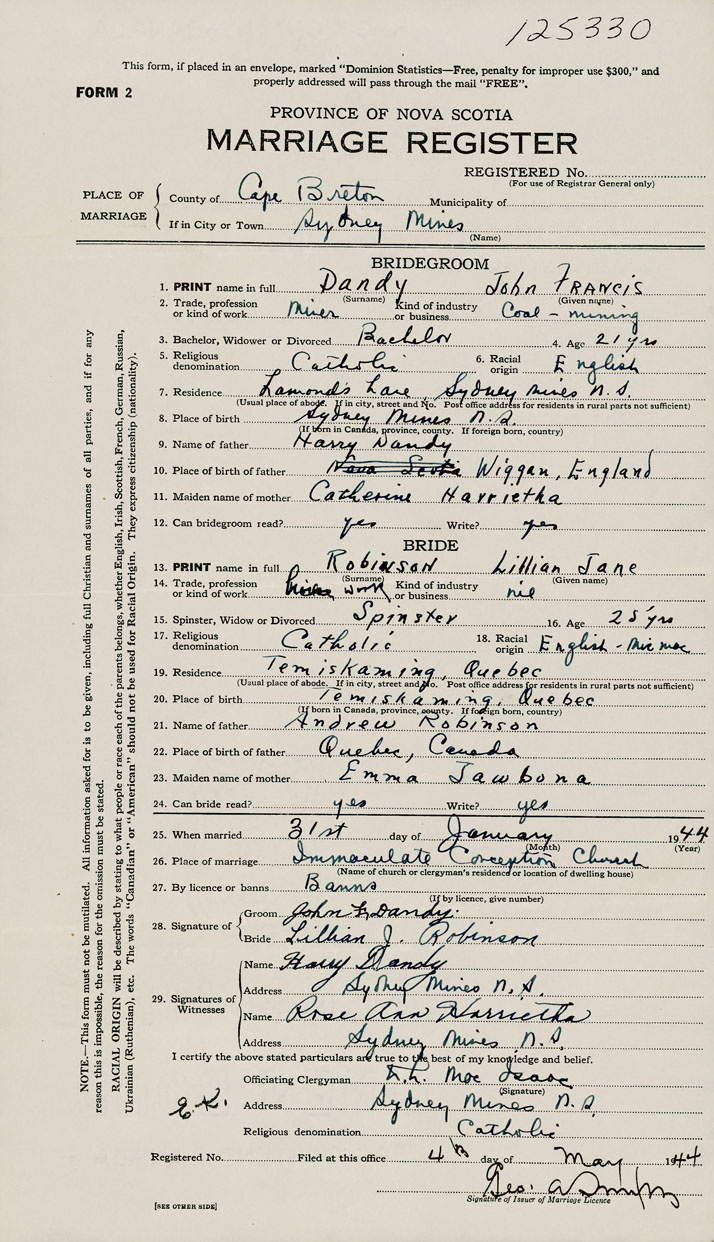 125330
This form, if placed in an envelope, marked "Dominion Statistics—Free, penalty for improper use $300," and
properly addressed will pass through the mail "FREE".
FORM 2
PROVINCE OF NOVA SCOTIA
MARRIAGE REGISTER
REGISTERED No.
(For use of Registrar General only)
PLACE OF MARRIAGE
County of Cape Breton Municipality of
If in City or Town Sydney Mines
(Name)
BRIDEGROOM
1. PRINT name in full Dandy John Francis
(Surname) (Given name)
2. Trade, profession or kind of work Miner Kind of industry or business Coal - mining
3. Bachelor, Widower or Divorced Bachelor 4. Age 21 yrs
5. Religious denomination Catholic 6. Racial origin English
7. Residence Lamond's Lane, Sydney Mines N.S.
(Usual place of abode. If in city, street and No. Post office address for residents in rural parts not sufficient)
8. Place of birth Sydney Mines N.S.
(If born in Canada, province, county. If foreign born, country)
9. Name of father Harry Dandy
10. Place of birth of father Nova Scotia Wiggan, England
11. Maiden name of mother Catherine Harrietha
12. Can bridegroom read? yes Write? yes
BRIDE
13. PRINT name in full Robinson Lillian Jane
(Surname) (Given name)
14. Trade, profession or kind of work work Kind of industry or business nil
15. Spinster, Widow or Divorced Spinster 16. Age 25 yrs
17. Religious denomination Catholic 18. Racial origin English - Mic mac
19. Residence Temiskaming, Quebec
(Usual place of abode. If in city, street and No. Post office address for residents in rural parts not sufficient)
20. Place of birth Temiskaming, Quebec
(If born in Canada, province, county. If foreign born, country)
21. Name of father Andrew Robinson
22. Place of birth of father Quebec, Canada
23. Maiden name of mother Emma Jawbona
24. Can bride read? yes Write? yes
25. When married 31st day of January 1944
(Month) (Year)
26. Place of marriage Immaculate Conception Church
(Name of church or clergyman's residence or location of dwelling house)
27. By licence or banns Banns
(If by licence, give number)
28. Signature of
Groom John F. Dandy
Bride Lillian J. Robinson
29. Signatures of Witnesses
Name Harry Dandy
Address Sydney Mines N.S.
Name Rose Ann Harrietha
Address Sydney Mines N.S.
I certify the above stated particulars are true to the best of my knowledge and belief.
Officiating Clergyman Mac Isaac
(Signature)
Address Sydney Mines N.S.
Religious denomination Catholic
Registered No. Filed at this office 4th day of May 1944
Geo. A
Signature of Issuer of Marriage Licence
[SEE OTHER SIDE]
NOTE.—This form must not be mutilated. All information asked for is to be given, including full Christian and surnames of all parties, and if for any
reason this is impossible, the reason for the omission must be stated.
RACIAL ORIGIN will be described by stating to what people or race each of the parents belongs, whether English, Irish, Scottish, French, German, Russian,
Ukrainian (Ruthenian), etc. The words "Canadian" or "American" should not be used for Racial Origin. They express citizenship (nationality).